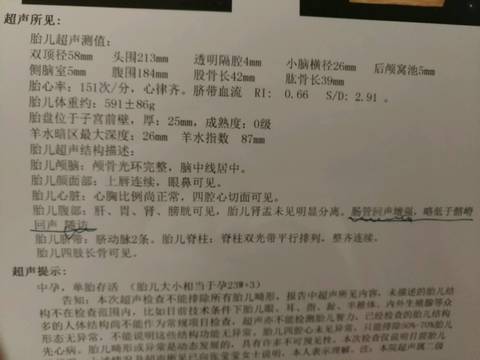 超声所见：
胎儿超声测值：
双顶径58mm 头围213mm 透明隔腔4mm 小脑横径26mm 后颅窝池5mm
侧脑室5mm 腹围184mm 股骨长42mm 肱骨长39mm
胎心率：151次/分，心律齐。脐带血流 RI: 0.66 S/D: 2.91 。
胎儿体重约：591±86g
胎盘位于子宫前壁，厚：25mm，成熟度：0级
羊水暗区最大深度：26mm 羊水指数 87mm
胎儿超声结构描述：
胎儿颅脑：颅骨光环完整，脑中线居中。
胎儿颜面部：上唇连续，眼鼻可见。
胎儿心脏：心胸比例尚正常，四腔心切面可见。
胎儿腹部：肝、胃、肾、膀胱可见，胎儿肾盂未见明显分离。肠管回声增强，略低于髂嵴
回声
胎儿脐带：脐动脉2条。胎儿脊柱：脊柱双光带平行排列，整齐连续。
胎儿四肢长骨可见。
超声提示：
中孕，单胎存活 （胎儿大小相当于孕23W+3）
告知：本次超声检查不能排除所有胎儿畸形，报告中超声所见内容，未描述的胎儿结
构不在检查范围内，比如目前技术条件下胎儿眼、耳、指、趾、
多的人体结构尚不能作为常规项目检查，超声亦不能检测胎儿智力，已经检查的胎儿结构
形态无异常，不能说明这些结构功能无异常。胎儿四腔心未见异常，只能排除50%-70%胎儿
先心病。胎儿畸形